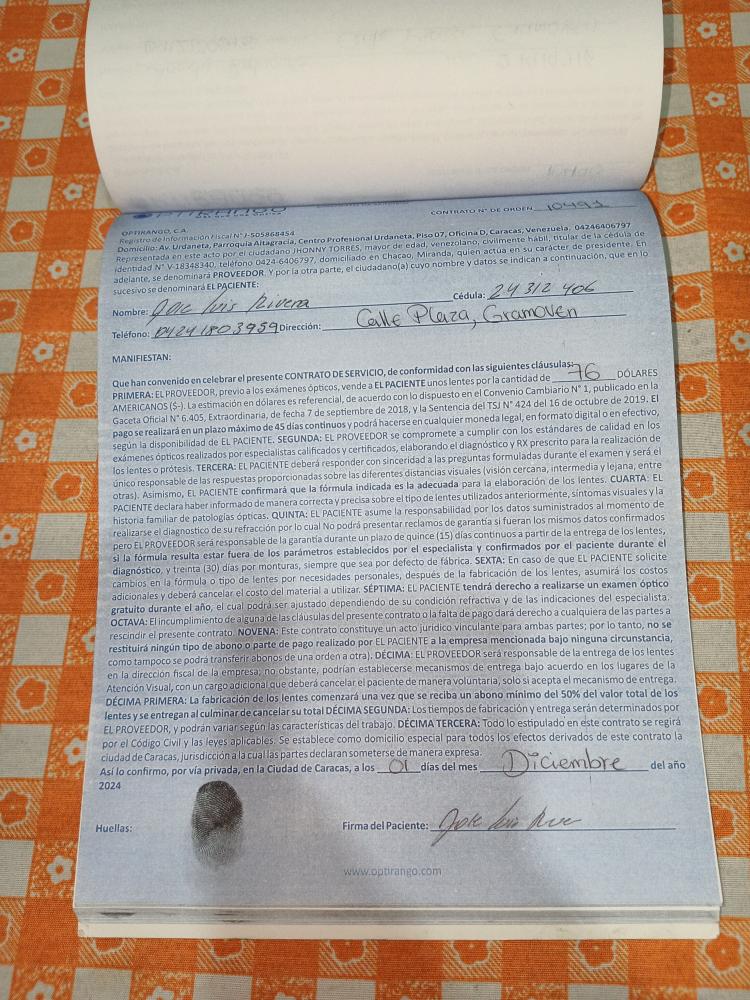 OPTIRANGO
CONTRATO N° DE ORDEN 10491
OPTIRANGO, C.A.
Registro de Información Fiscal N° J-505868454
Domicilio: Av. Urdaneta, Parroquia Altagracia, Centro Profesional Urdaneta, Piso 07, Oficina D, Caracas, Venezuela, 04246406797
Representada en este acto por el ciudadano JHONNY TORRES, mayor de edad, venezolano, civilmente hábil, titular de la cédula de
identidad N° V-18348340, teléfono 0424-6406797, domiciliado en Chacao, Miranda, quien actúa en su carácter de presidente. En
adelante, se denominará PROVEEDOR. Y por la otra parte, el ciudadano(a) cuyo nombre y datos se indican a continuación, que en lo
sucesivo se denominará EL PACIENTE:
Nombre: Jose luis Rivera Cédula: 24 312 406
Teléfono: 0424 1803959 Dirección: Calle Plaza, Gramoven
MANIFIESTAN:
Que han convenido en celebrar el presente CONTRATO DE SERVICIO, de conformidad con las siguientes cláusulas:
PRIMERA: EL PROVEEDOR, previo a los exámenes ópticos, vende a EL PACIENTE unos lentes por la cantidad de 76 DÓLARES
AMERICANOS ($-). La estimación en dólares es referencial, de acuerdo con lo dispuesto en el Convenio Cambiario N° 1, publicado en la
Gaceta Oficial N° 6.405, Extraordinaria, de fecha 7 de septiembre de 2018, y la Sentencia del TSJ N° 424 del 16 de octubre de 2019. El
pago se realizará en un plazo máximo de 45 días continuos y podrá hacerse en cualquier moneda legal, en formato digital o en efectivo,
según la disponibilidad de EL PACIENTE. SEGUNDA: EL PROVEEDOR se compromete a cumplir con los estándares de calidad en los
exámenes ópticos realizados por especialistas calificados y certificados, elaborando el diagnóstico y RX prescrito para la realización de
los lentes o prótesis. TERCERA: EL PACIENTE deberá responder con sinceridad a las preguntas formuladas durante el examen y será el
único responsable de las respuestas proporcionadas sobre las diferentes distancias visuales (visión cercana, intermedia y lejana, entre
otras). Asimismo, EL PACIENTE confirmará que la fórmula indicada es la adecuada para la elaboración de los lentes. CUARTA: EL
PACIENTE declara haber informado de manera correcta y precisa sobre el tipo de lentes utilizados anteriormente, síntomas visuales y la
historia familiar de patologías ópticas. QUINTA: EL PACIENTE asume la responsabilidad por los datos suministrados al momento de
realizarse el diagnostico de su refracción por lo cual No podrá presentar reclamos de garantía si fueran los mismos datos confirmados
pero EL PROVEEDOR será responsable de la garantía durante un plazo de quince (15) días continuos a partir de la entrega de los lentes,
si la fórmula resulta estar fuera de los parámetros establecidos por el especialista y confirmados por el paciente durante el
diagnóstico, y treinta (30) días por monturas, siempre que sea por defecto de fábrica. SEXTA: En caso de que EL PACIENTE solicite
cambios en la fórmula o tipo de lentes por necesidades personales, después de la fabricación de los lentes, asumirá los costos
adicionales y deberá cancelar el costo del material a utilizar. SÉPTIMA: EL PACIENTE tendrá derecho a realizarse un examen óptico
gratuito durante el año, el cual podrá ser ajustado dependiendo de su condición refractiva y de las indicaciones del especialista.
OCTAVA: El incumplimiento de alguna de las cláusulas del presente contrato o la falta de pago dará derecho a cualquiera de las partes a
rescindir el presente contrato. NOVENA: Este contrato constituye un acto jurídico vinculante para ambas partes; por lo tanto, no se
restituirá ningún tipo de abono o parte de pago realizado por EL PACIENTE a la empresa mencionada bajo ninguna circunstancia,
como tampoco se podrá transferir abonos de una orden a otra). DÉCIMA: EL PROVEEDOR será responsable de la entrega de los lentes
en la dirección fiscal de la empresa; no obstante, podrían establecerse mecanismos de entrega bajo acuerdo en los lugares de la
Atención Visual, con un cargo adicional que deberá cancelar el paciente de manera voluntaria, solo si acepta el mecanismo de entrega.
DÉCIMA PRIMERA: La fabricación de los lentes comenzará una vez que se reciba un abono mínimo del 50% del valor total de los
lentes y se entregan al culminar de cancelar su total DÉCIMA SEGUNDA: Los tiempos de fabricación y entrega serán determinados por
EL PROVEEDOR, y podrán variar según las características del trabajo. DÉCIMA TERCERA: Todo lo estipulado en este contrato se regirá
por el Código Civil y las leyes aplicables. Se establece como domicilio especial para todos los efectos derivados de este contrato la
ciudad de Caracas, jurisdicción a la cual las partes declaran someterse de manera expresa.
Así lo confirmo, por vía privada, en la Ciudad de Caracas, a los 01 días del mes Diciembre del año
2024
Huellas:
Firma del Paciente: Jose luis Rive
www.optirango.com